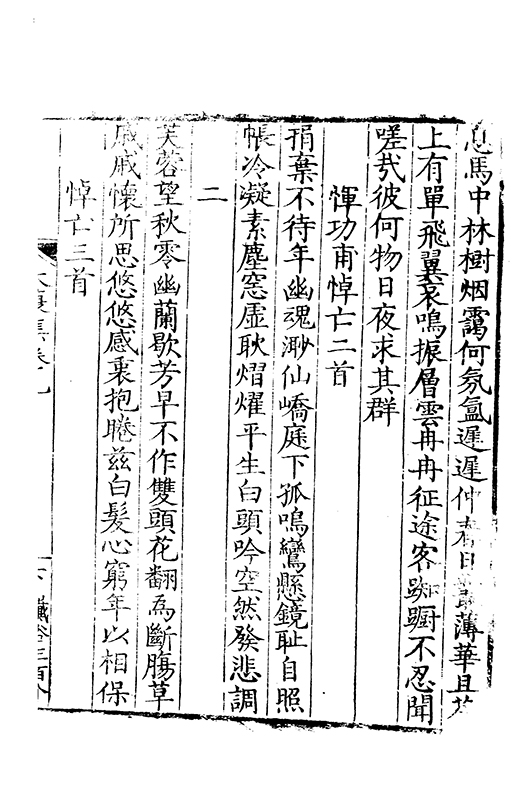 息馬中林樹烟靄何氛氳遲遲仲春日 薄華且芬
上有單飛翼哀鳴振層雲冉冉征途客踟躕不忍聞
嗟㢤彼何物日夜求其群
惲功甫悼亡二首
捐棄不待年幽魂渺仙嶠庭下孤鳴鸞懸鏡耻自照
帳冷凝素塵窓虛耿熠燿平生白頭吟空然發悲調
二
芙蓉望秋零幽蘭歇芳早不作雙頭花翻為斷膓草
戚戚懷所思悠悠感裏抱睠兹白髮心窮年以相保
悼亡三首
集卷十九